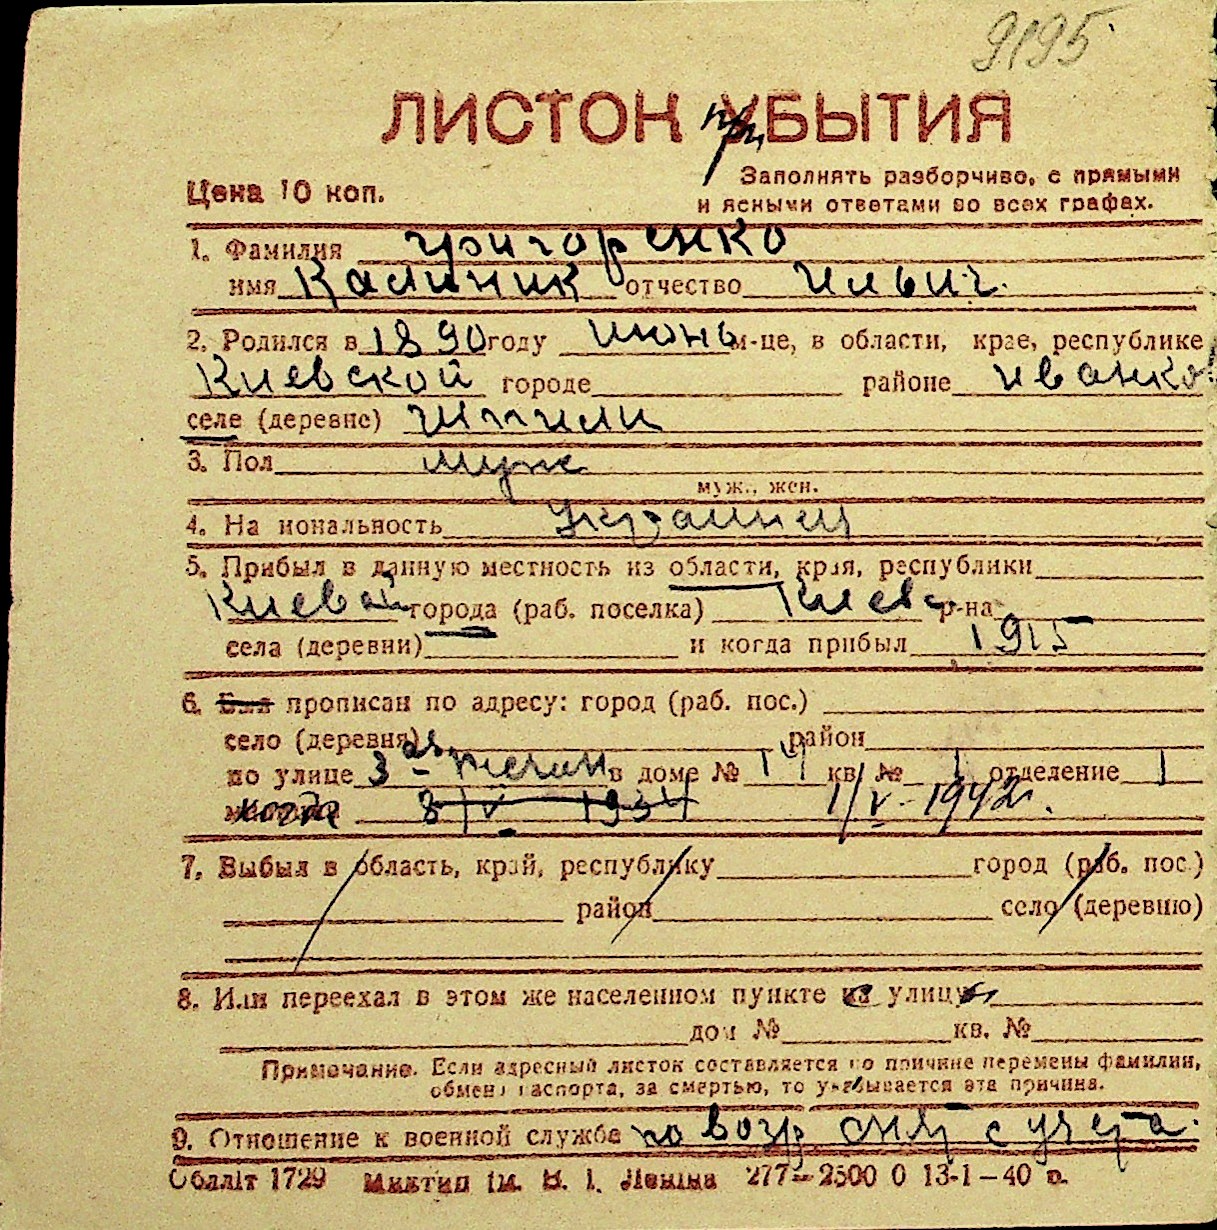 9195
ЛИСТОК при УБЫТИЯ
Цена 10 коп.
Заполнять разборчиво, с прямыми
и ясными ответами во всех графах.
1. Фамилия Григоренко
имя Калиник отчество Ильич.
2. Родился в 1890 году июнь м-це, в области, крае, республике
Киевской городе районе Иванко
селе (деревне) Шпили
3. Пол муж
муж., жен.
4. На иональность Украинец
5. Прибыл в данную местность из области, края, республики
Киевой города (раб. поселка) Киев р-на
села (деревни) и когда прибыл 1915
6. Был прописан по адресу: город (раб. пос.)
село (деревня) район
по улице 3 - в доме № 14 кв. № 1 отделение 1
когда 8/V - 1934 1/V - 1942.
7. Выбыл в область, край, республику город (раб. пос.)
район село (деревню)
8. Или переехал в этом же населенном пункте с улицы
дом № кв. №
Примечание. Если адресный листок составляется по причине перемены фамилии,
обмена паспорта, за смертью, то указывается эта причина.
9. Отношение к военной службе по возр снят с учета.
Обллiт 1729 Миктип iм. В. I. Ленiна 277—2500 0 13-1—40 р.